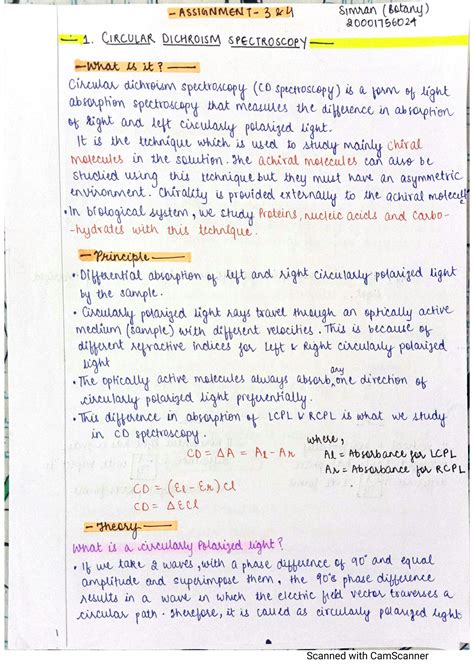 - ASSIGNMENT - 3 & 4
Simran (Botany)
20001756024
1. CIRCULAR DICHROISM SPECTROSCOPY
- What is it? -
Circular dichroism spectroscopy (CD spectroscopy) is a form of light
absorption spectroscopy that measures the difference in absorption
of right and left circularly polarized light.
It is the technique which is used to study mainly chiral
molecules in the solution. The achiral molecules can also be
studied using this technique but they must have an asymmetric
environment. Chirality is provided externally to the achiral molecule
• In biological system, we study Proteins, nucleic acids and Carbo-
-hydrates with this technique.
- Principle -
• Differential absorption of left and right circularly polarized light
by the sample.
• Circularly polarized light rays travel through an optically active
medium (sample) with different velocities. This is because of
different refractive indices for left & Right circularly polarized
light
• The optically active molecules always absorb any one direction of
circularly polarized light preferentially.
• This difference in absorption of LCPL & RCPL is what we study
in CD spectroscopy.
where,
CD = ΔA = Al - Ar
Al = Absorbance for LCPL
Ar = Absorbance for RCPL
CD = (εl - εr) Cl
CD = ΔεCl
- Theory -
What is a circularly Polarized light?
• If we take 2 waves, with a phase difference of 90° and equal
amplitude and superimpose them, the 90° phase difference
results in a wave in which the electric field vector traverses a
circular path. Therefore, it is called as circularly polarized light
1
Scanned with CamScanner